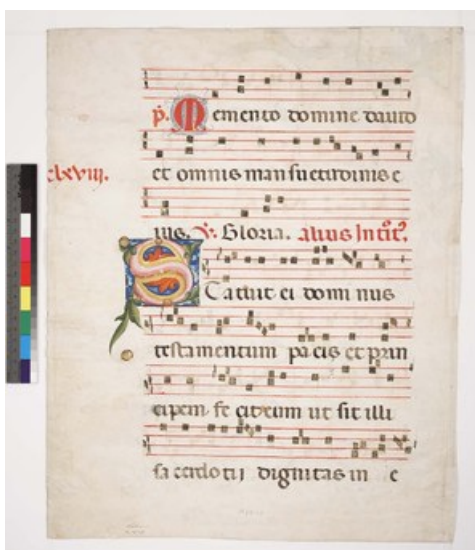 p̄. Memento domine dauid
clxviii.
et omnis mansuetudinis e
ius. v̄. Gloria. Alius Introit̄.
Statuit ei dominus
testamentum pacis et prin
cipem fecit eum ut sit illi
sacerdotij dignitas in e